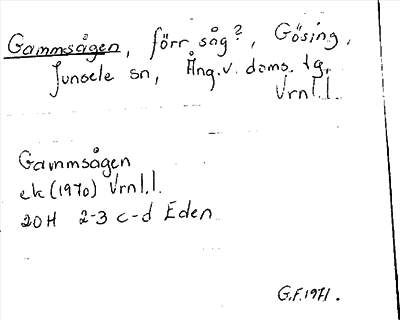 Gammsågen, förr såg?, Gösing,
Junsele sn, Ång.v. doms. tg,
Vrnl.l.
Gammsågen
ek (1970) Vrnl.l.
20H 2-3 c-d Eden
G.F. 1971.